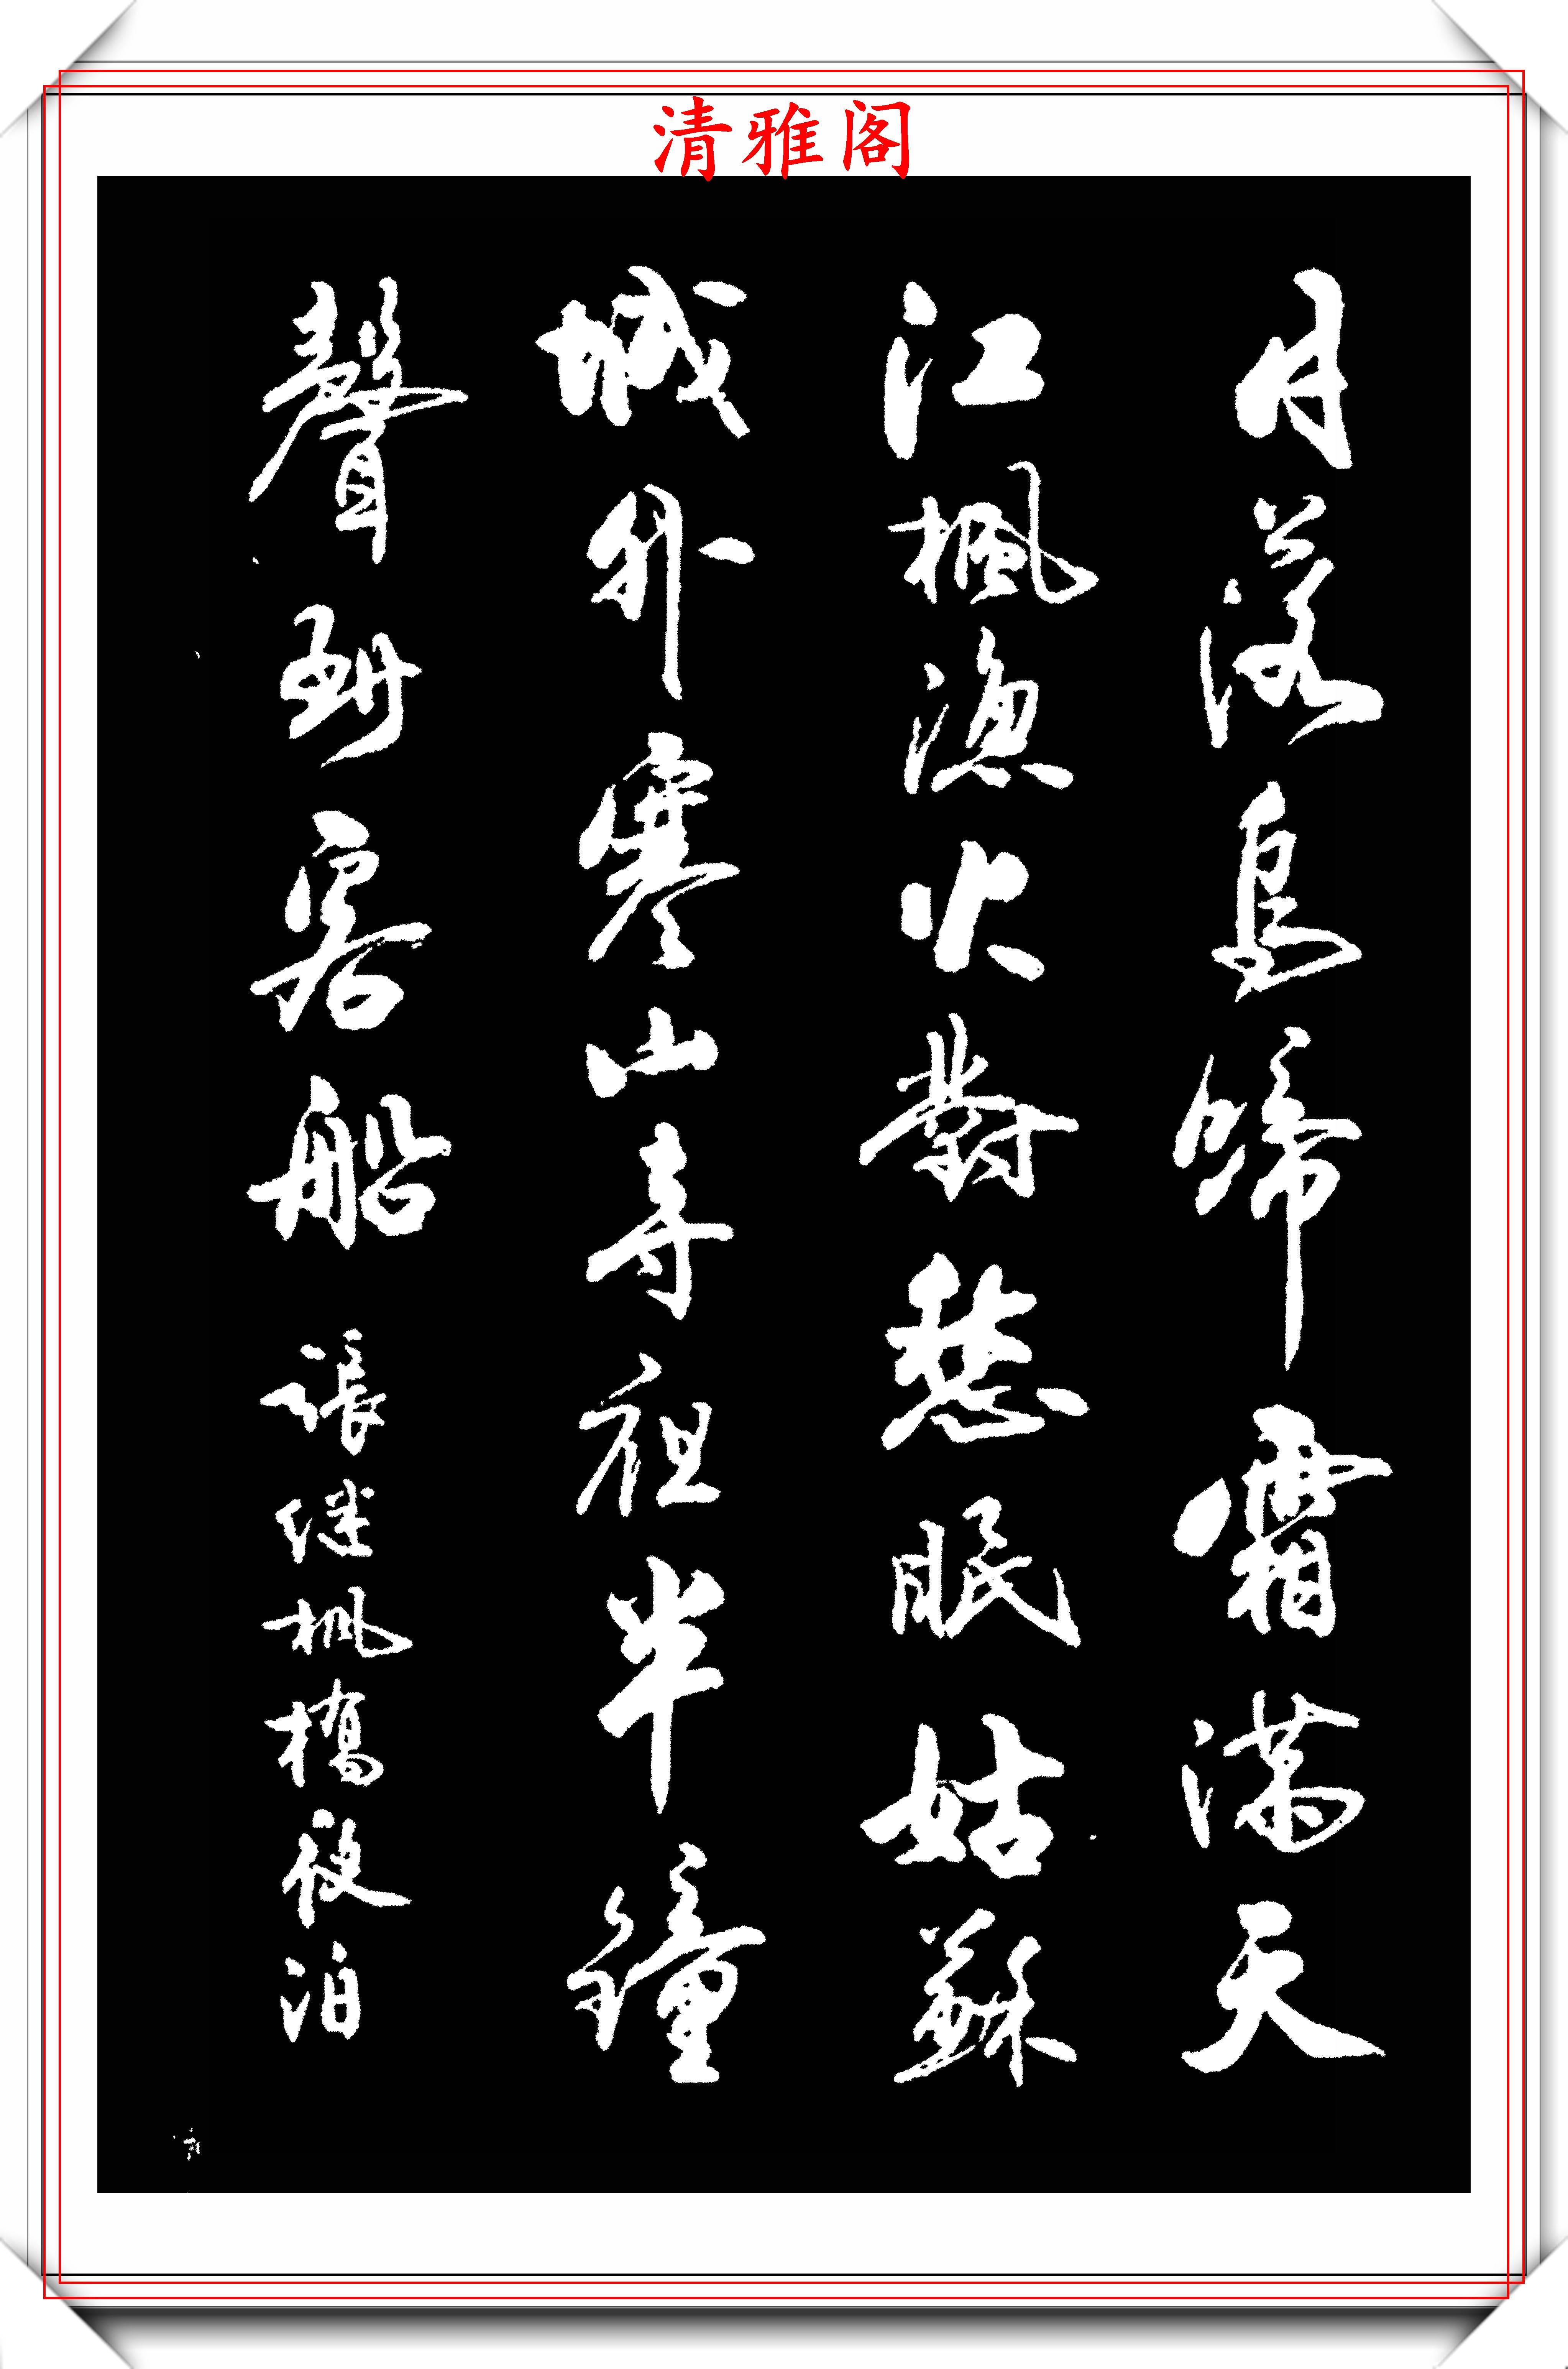 清雅阁
月落烏啼霜滿天
江楓漁火對愁眠姑蘇
城外寒山寺祖半鐘
聲到客船
張继楓橋夜泊